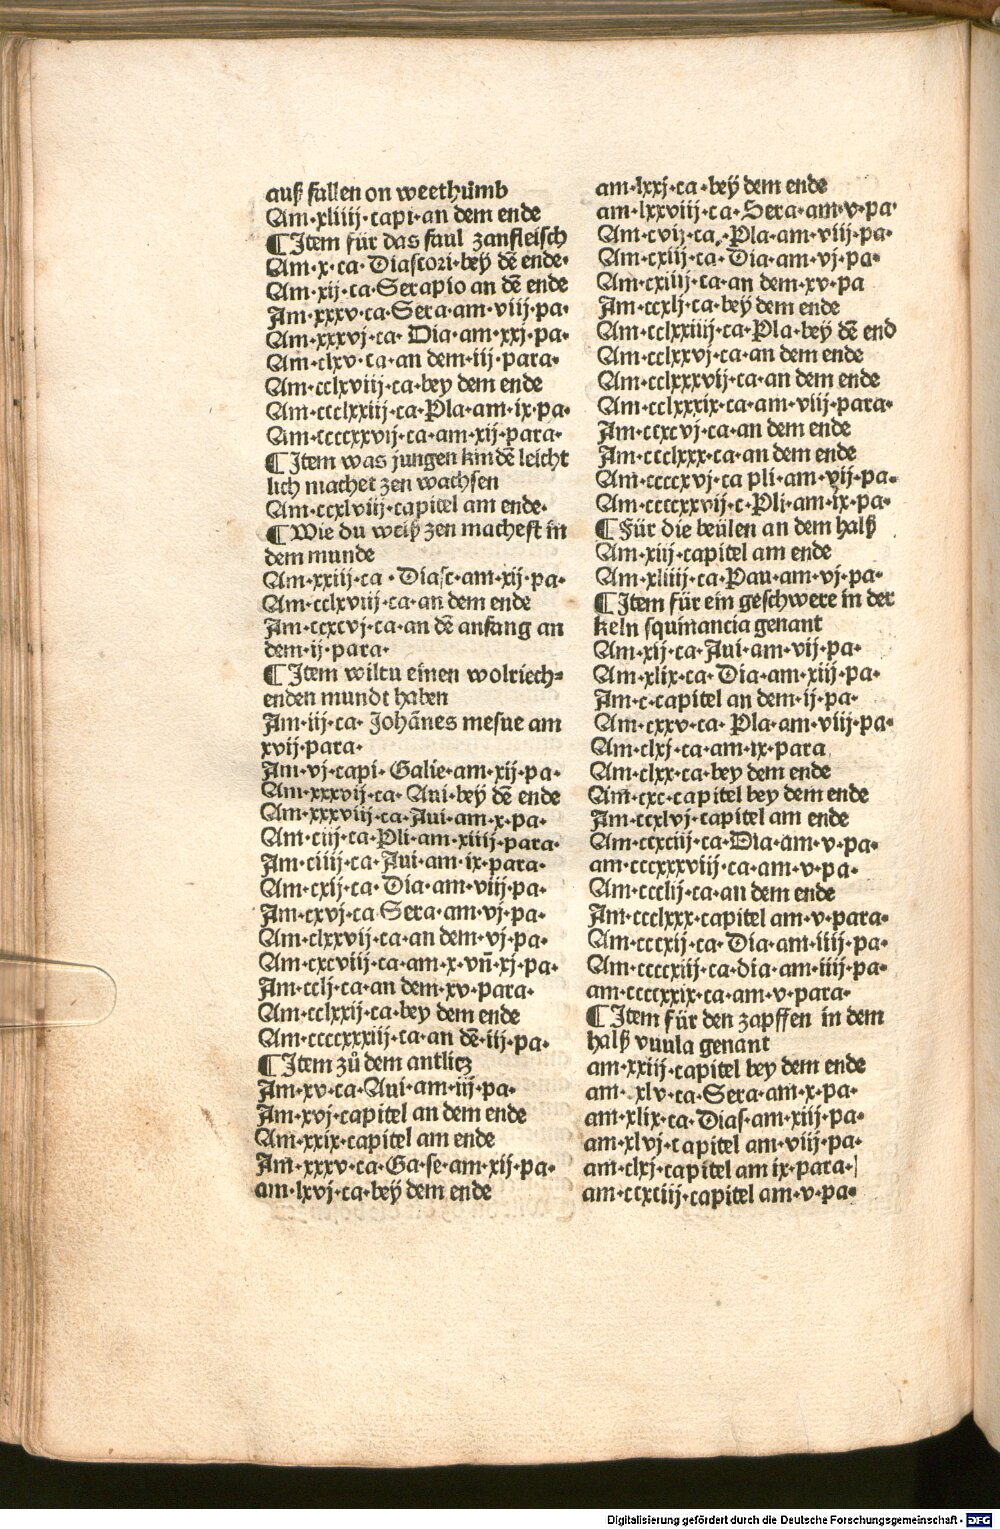 auß fallen on weethůmb
Am·xliiij·capi·an dem ende
¶ Item für das faul zanfleisch
Am·x·ca·Diascori·beÿ dē ende·
Am·xij·ca·Serapio an dē ende
Am·xxxv·ca·Sera·am·viij·pa·
Am·xxxvj·ca·Dia·am·xxj·pa·
Am·clxv·ca·an dem·iij·para·
Am·cclxviij·ca·bey dem ende
Am·ccclxxiij·ca·Pla·am·ix·pa·
Am·ccccxxvij·ca·am·xij·para·
¶ Item was jungen kindē leicht
lich machet zen wachsen
Am·ccxlviij·capitel am ende·
¶ Wie du weiß zen machest in
dem munde
Am·xxiij·ca·Diasc·am·xij·pa·
Am·cclxviij·ca·an dem ende
Am·ccxcvj·ca·an dē anfang an
dem·ij·para·
¶ Item wiltu einen wolriech⸗
enden mundt haben
Am·iij·ca·Johānes mesue am
xvij·para·
Am·vj·capi·Galie·am·xij·pa·
Am·xxxvij·ca·Aui·beÿ dē ende
Am·xxxviij·ca·Aui·am·x·pa·
Am·ciij·ca·Pli·am·xiiij·para·
Am·ciiij·ca·Aui·am·ix·para·
Am·cxij·ca·Dia·am·viij·pa·
Am·cxvj·ca·Sera·am·vj·pa·
Am·clxxvij·ca·an dem·vj·pa·
Am·cxcviij·ca·am·x·vn̄·xj·pa·
Am·cclj·ca·an dem·xv·para·
Am·cclxxij·ca·bey dem ende
Am·ccccxxxiij·ca·an dē·iij·pa·
¶ Item zů dem antlicz
Am·xv·ca·Aui·am·iij·pa·
Am·xvj·capitel an dem ende
Am·xxix·capitel am ende
Am·xxxv·ca·Ga·se·am·xij·pa·
am·lxvj·ca·beÿ dem ende
am·lxxj·ca·beÿ dem ende
am·lxxviij·ca·Sera·am·v·pa·
Am·cvij·ca·Pla·am·viij·pa·
Am·cxiij·ca·Dia·am·vj·pa·
Am·cxiiij·ca·an dem·xv·pa
Am·ccxlj·ca·beÿ dem ende
Am·cclxxiiij·ca·Pla·beÿ dē end
Am·cclxxvj·ca·an dem ende
Am·cclxxxvij·ca·an dem ende
Am·cclxxxix·ca·am·viij·para·
Am·ccxcvj·ca·an dem ende
Am·ccclxxx·ca·an dem ende
Am·ccccxvj·ca pli·am·vij·pa·
Am·ccccxxvij·c·Pli·am·ix·pa·
¶ Für die beülen an dem halß
Am·xiij·capitel am ende
Am·xliiij·ca·Pau·am·vj·pa·
¶ Item für ein geschwere in der
keln squinancia genant
Am·xij·ca·Aui·am·vij·pa·
Am·xlix·ca·Dia·am·xiij·pa·
Am·c·capitel an dem·ij·pa·
Am·cxxv·ca·Pla·am·viij·pa·
Am·clxj·ca·am·ix·para
Am·clxx·ca·bey dem ende
Am·cxc·capitel bey dem ende
Am·ccxlvj·capitel am ende
Am·ccxciij·ca·Dia·am·v·pa·
am·cccxxxviij·ca·am·v·pa·
Am·ccclij·ca·an dem ende
Am·ccclxxx·capitel am·v·para·
Am·cccxij·ca·Dia·am·iiij·pa·
Am·ccccxiij·ca·dia·am·iiij·pa·
am·ccccxxix·ca·am·v·para·
¶ Item für den zapffen in dem
halß vuula genant
am·xxiij·capitel bey dem ende
am·xlv·ca·Sera·am·x·pa·
am·xlix·ca·Dias·am·xiij·pa·
am·xlvj·capitel am·viij·pa·
am·clxj·capitel am ix·para·
am·ccxciij·capitel am·v·pa·
Digitalisierung gefördert durch die Deutsche Forschungsgemeinschaft - DFG